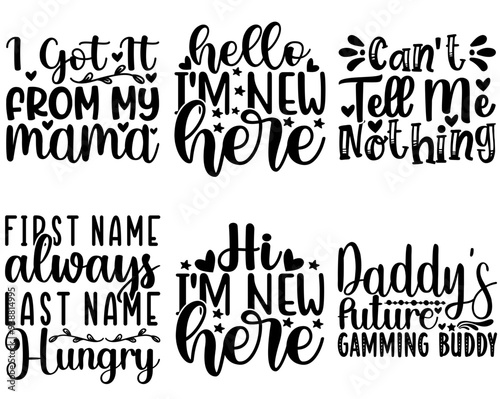 I Got It
FROM MY
mama
hello
I'M NEW
here
Can't
Tell Me
Nothing
FIRST NAME
always
LAST NAME
Hungry
Hi
I'M NEW
here
Daddy's
future
GAMMING BUDDY
Adobe Stock